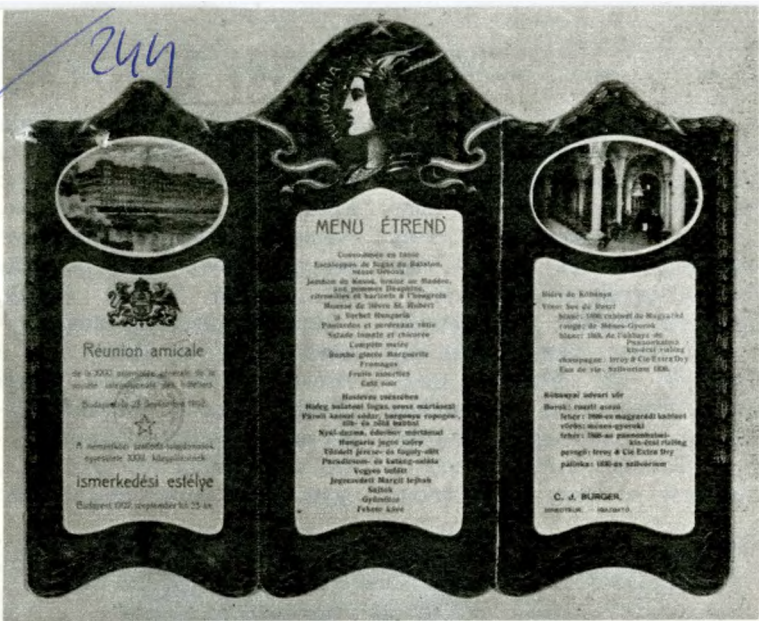 244
HUNGARIA
Réunion amicale
de la XXXII assemblée générale de la
société internationale des hôteliers
Budapest le 25 Septembre 1902.
A nemzetközi szállodatulajdonosok
egyesülete XXXII. közgyűlésének
ismerkedési estélye
Budapest 1902 szeptember hó 25-én.
MENU ÉTREND
Consommée en tasse
Escaloppes de fogas du Balaton,
sauce Génoise
Jambon de Kassa, braisé au Madère,
aux pommes Dauphine,
citrouilles et haricots à l'hongroise
Mousse de lièvre St. Hubert
Sorbet Hungaria
Poulardes et perdreaux rôtis
Salade tomate et chicorée
Compôte melée
Bombe glacée Marguerite
Fromages
Fruits assorties
Café noir
Húsleves csészében
Hideg balatoni fogas, orosz mártással
Párolt kassai sódar, burgonya ropogós,
tök- és zöld babbal
Nyúl-derme, édesbor mártással
Hungaria jeges szörp
Tűzdelt jércze- és fogoly-sült
Paradicsom- és katáng-saláta
Vegyes befőtt
Jegeczedett Margit lejbak
Sajtok
Gyümölcs
Fekete kávé
Bière de Kőbánya
Vins: Sec de Ruszt
blanc: 1896 cabinet de Magyarád
rouge: de Ménes-Gyorok
blanc: 1868. de l'abbaye de
Pannonhalma
kis-écsi risling
champagne: Irroy & Cie Extra Dry
Eau de vie: Szilvorium 1836.
Kőbányai udvari sör
Borok: ruszti aszú
fehér: 1896-os magyarádi kabinet
vörös: ménes-gyoroki
fehér: 1868-as pannonhalmi-
kis-écsi risling
pezsgő: Irroy & Cie Extra Dry
pálinka: 1836-os szilvórium
C. J. BURGER,
DIRECTEUR. IGAZGATÓ.